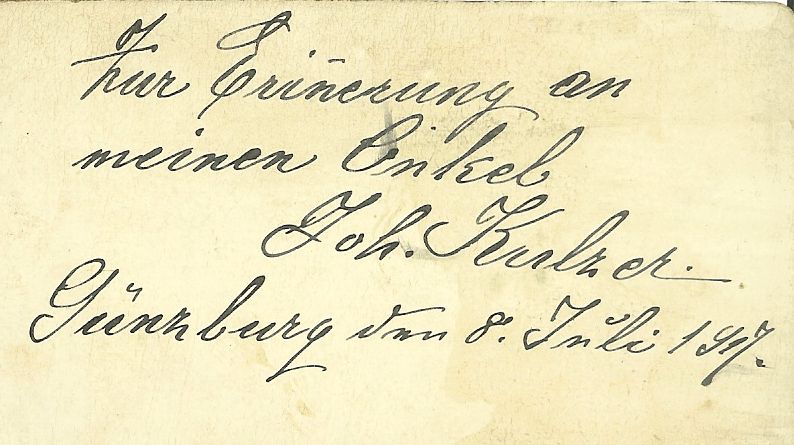 Zur Erin̄erung an
meinen Onkel
Joh. Kulzer.
Günzburg den 8. Jŭli 1917.